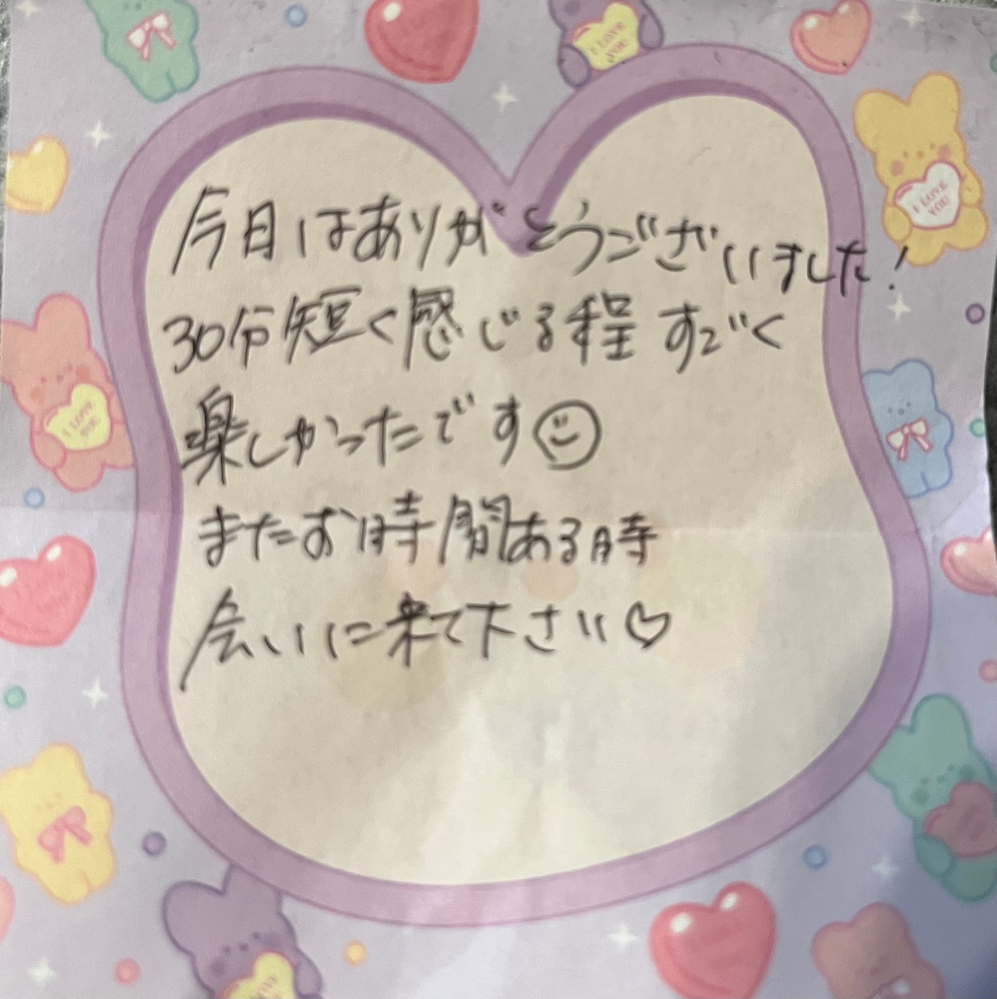 今日はありがとうございました!
30分短く感じる程すごく
楽しかったです☺
またお時間ある時
会いに来て下さい♡
I LOVE YOU
I LOVE YOU
I LOVE YOU